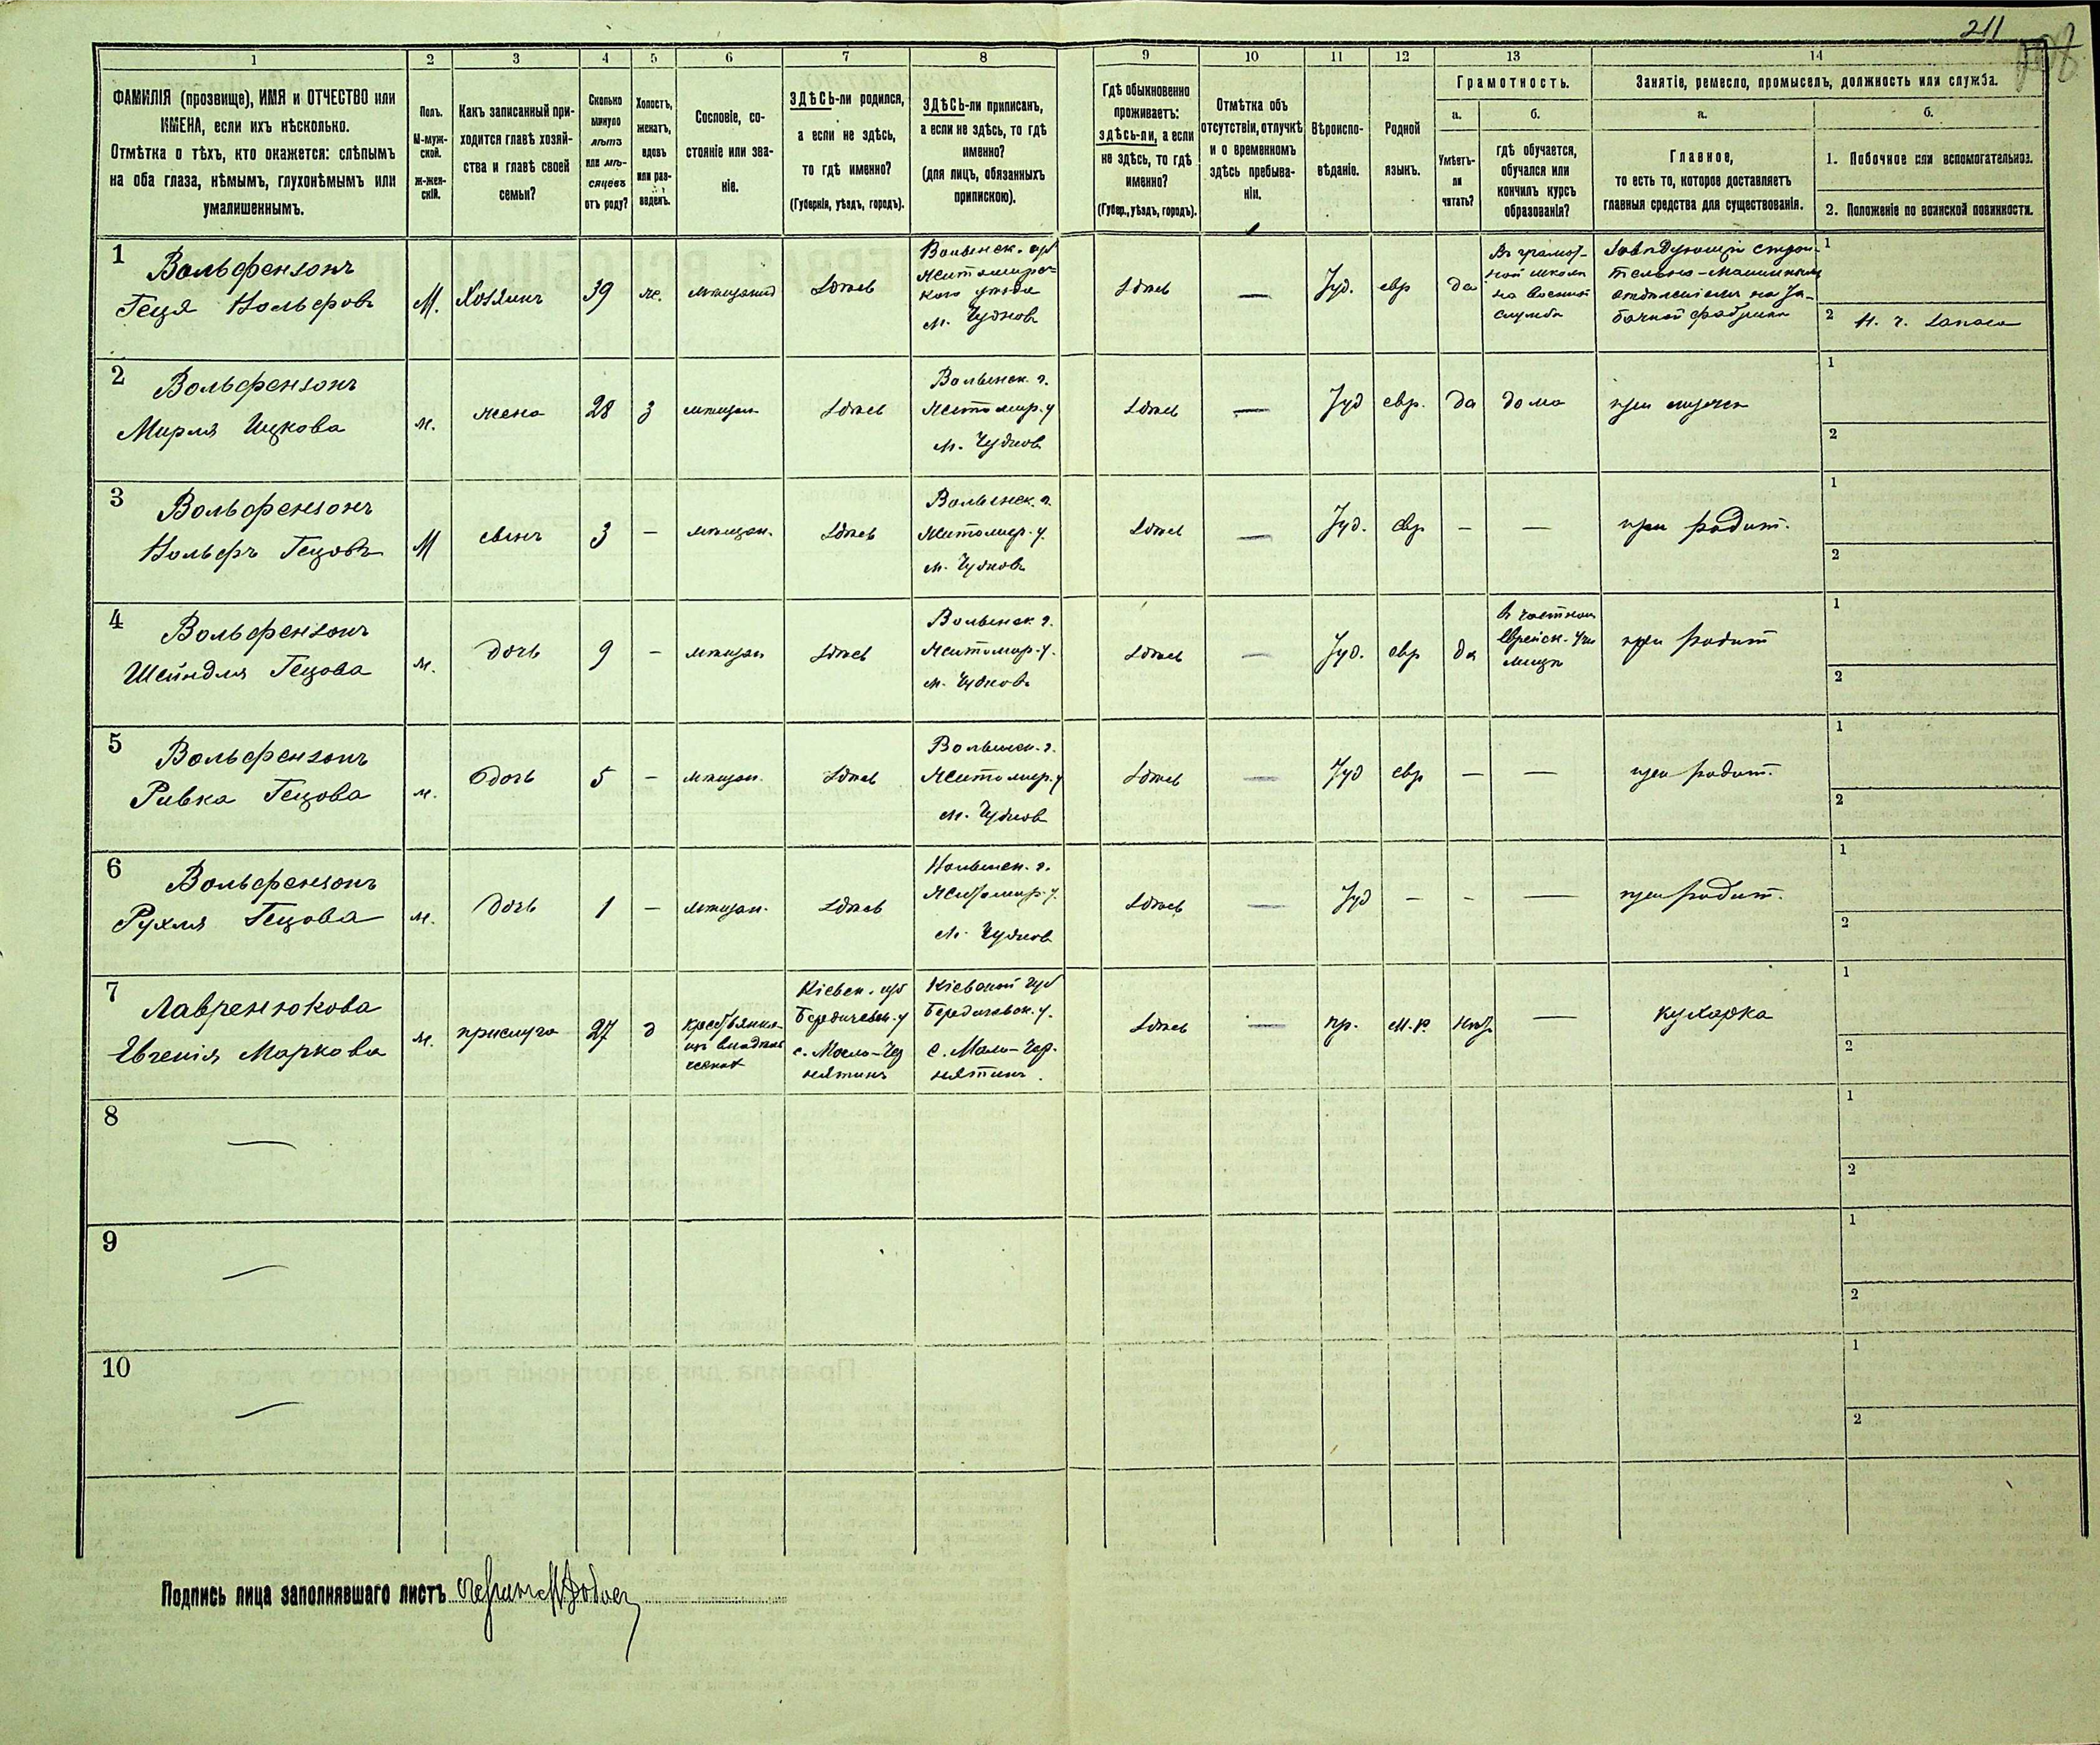 211
1 2 3 4 5 6 7 8 9 10 11 12 13 14
ФАМИЛІЯ (прозвище), ИМЯ и ОТЧЕСТВО или
ИМЕНА, если ихъ нѣсколько.
Отмѣтка о тѣхъ, кто окажется: слѣпымъ
на оба глаза, нѣмымъ, глухонѣмымъ или
умалишеннымъ.
Полъ.
М-муж-
ской.
ж-жен-
скій.
Какъ записанный при-
ходится главѣ хозяй-
ства и главѣ своей
семьи?
Сколько
минуло
лѣтъ
или мѣ-
сяцевъ
отъ роду?
Холостъ,
женатъ,
вдовъ
или раз-
веденъ.
Сословіе, со-
стояніе или зва-
ніе.
ЗДѢСЬ-ли родился,
а если не здѣсь,
то гдѣ именно?
(Губернія, уѣздъ, городъ).
ЗДѢСЬ-ли приписанъ,
а если не здѣсь, то гдѣ
именно?
(для лицъ, обязанныхъ
припискою).
Гдѣ обыкновенно
проживаетъ:
здѣсь-ли, а если
не здѣсь, то гдѣ
именно?
(Губер., уѣздъ, городъ).
Отмѣтка объ
отсутствіи, отлучкѣ
и о временномъ
здѣсь пребыва-
ніи.
Вѣроиспо-
вѣданіе.
Родной
языкъ.
Грамотность.
а.
Умѣетъ-
ли
читать?
б.
гдѣ обучается,
обучался или
кончилъ курсъ
образованія?
Занятіе, ремесло, промыселъ, должность или служба.
а.
Главное,
то есть то, которое доставляетъ
главныя средства для существованія.
б.
1. Побочное или вспомогательное.
2. Положеніе по воинской повинности.
1
Вольфензонъ
Геця Вольфовъ
М.
Хозяинъ
39
ж.
мѣщанинъ
Здѣсь
Волынск. губ
Житомирс-
каго уѣзда
м. Чудновъ
Здѣсь
—
Іуд.
евр
да
Въ грамот-
ной школѣ
на военной
службѣ
Завѣдующій строи-
тельно-машиннымъ
отдѣленіемъ на Та-
бачной фабрикѣ
1
2 Н. ч. запаса
2
Вольфензонъ
Мирля Ицкова
ж.
жена
28
з
мѣщан
Здѣсь
Волынск. г.
Житомир. у
м. Чудновъ
Здѣсь
—
Іуд
евр.
да
дома
при мужѣ
1
2
3
Вольфензонъ
Вольфъ Гецовъ
М
сынъ
3
—
мѣщан.
Здѣсь
Волынск. г.
Житомир. у.
м. Чудновъ
Здѣсь
—
Іуд.
евр
—
—
при родит.
1
2
4
Вольфензонъ
Шейндля Гецова
ж.
дочь
9
—
мѣщан
Здѣсь
Волынск. г.
Житомир. у.
м. Чудновъ
Здѣсь
—
Іуд.
евр
да
въ частном
Еврейск. учи
лищѣ
при родит
1
2
5
Вольфензонъ
Ривка Гецова
ж.
дочь
5
—
мѣщан.
Здѣсь
Волынск. г.
Житомир. у
м. Чудновъ
Здѣсь
—
Іуд
евр
—
—
при родит.
1
2
6
Вольфензонъ
Рухля Гецова
ж.
дочь
1
—
мѣщан.
Здѣсь
Волынск. г.
Житомир. у.
м. Чудновъ
Здѣсь
—
Іуд
—
-
—
при родит.
1
2
7
Лавренюкова
Евгенія Маркова
ж.
прислуга
27
д
Крестьянка
изъ
Кіевск. губ
Бердичевск. у
с. Мало-Чер
нятинъ
Кіевской губ
Бердичевск. у.
с. Мало-Чер.
нятинъ.
Здѣсь
—
пр.
м.-р.
нѣтъ
—
кухарка
1
2
8
—
1
2
9
—
1
2
10
—
1
2
Подпись лица заполнявшаго листъ